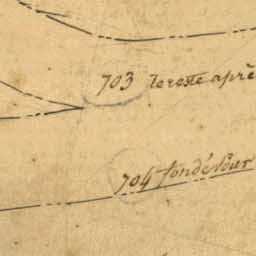 703 le reste aprè
704 fondé Pour